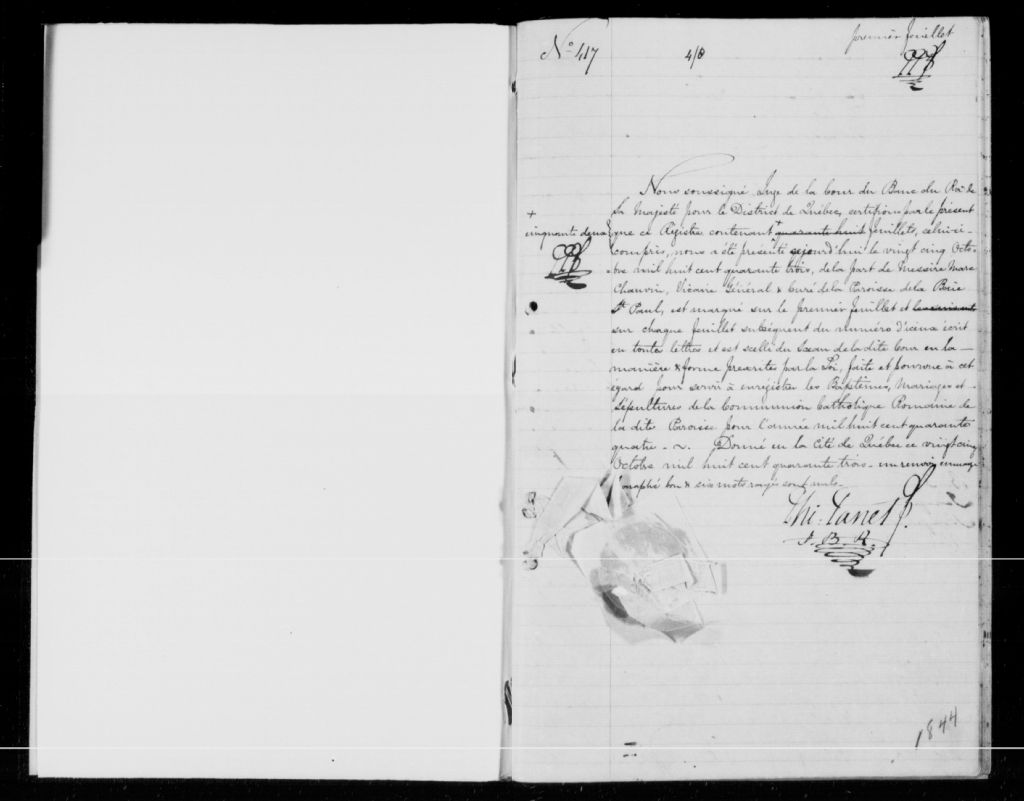 premier feuillet
No 417
4/8
Nous soussigné Juge de la Cour du Banc du Roi de
Sa Majesté pour le District de Québec, certifions par le présent
+
cinquante deux
que ce Régistre contenant + quarante huit feuillets, celui-ci
compris, nous a été présenté cejourd'hui le vingt cinq Octo-
bre mil huit cent quarante trois, de la part de Messire Marc
Chauvin, Vicaire Général & Curé de la Paroisse de la Baie
St. Paul, est marqué sur le premier feuillet et
sur chaque feuillet subséquent du numéro d'iceux écrit
en toutes lettres et est scellé du Sceau de la dite Cour en la
manière & forme prescrites par la Loi, faite et pourvue à cet
égard pour servir à enregistrer les Baptêmes, Mariages et
Sépultures de la Communion Catholique Romaine de
la dite Paroisse pour l'année mil huit cent quarante
quatre. Donné en la Cité de Québec ce vingt cinq
Octobre mil huit cent quarante trois - un renvoi en marge
paraphé bon & six mots rayés sont nuls.
J. B. R.
1844